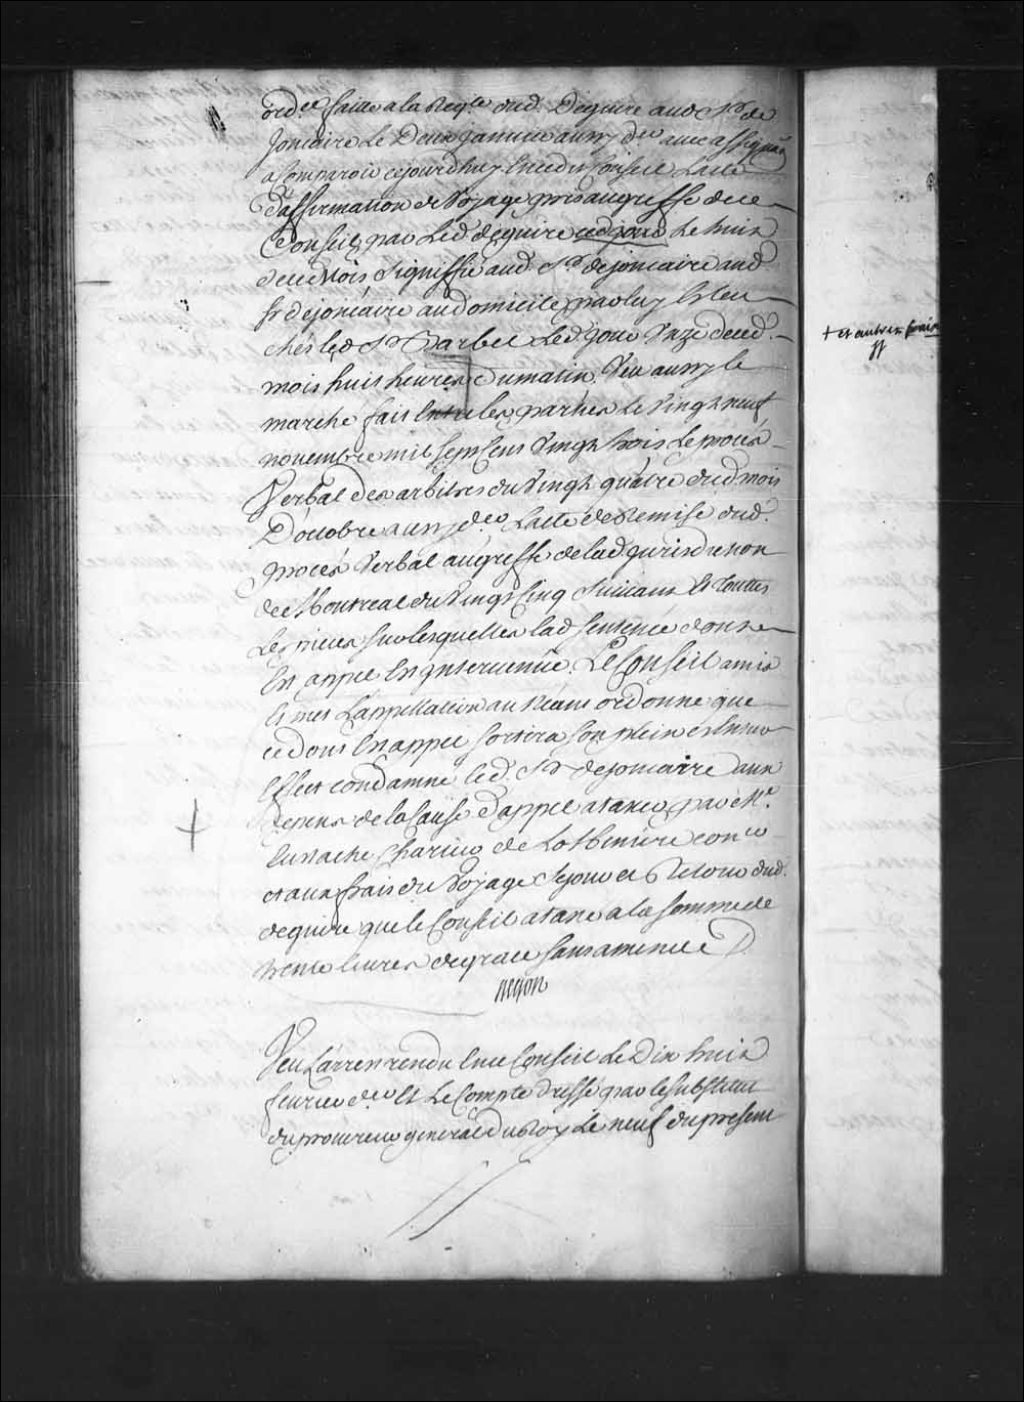 ord.ce faitte a la Req.te dud. Deguire aud S.r de
Joncaire Le Deux janvier aussy d.er avec assignaon
a Comparoir cejourdhuy En ced. Conseil Lacte
d'affirmation de Voyage pris au greffe de ce
Conseil par Led deguire led jour Le huit
de ce Mois Signiffié aud S.r dejoncaire aud
S.r dejoncaire au domicile par luy Esleu
chés led S.r Barbel Led. jour Unze dud.
mois huit heures du matin. Veu aussy le
marché fait Entre les parties le Vingt neuf
novembre mil sept Cent Vingt trois Le procés
Verbal des arbitres du Vingt quatre dud mois
D'octobre aussy d.er Lacte de Remise dud.
procés Verbal au greffe de lad. jurisdiction
de Montreal du Vingt Cinq Suivant Et touttes
Les pieces sur lesquelles lad Sentence dont
En appel Est Intervenüe. Le Conseil a mis
Et met L'appellation au Néant ordonne que
ce dont Est appel Sortira Son plein et Entier
Effect condamne led. S.r dejoncaire aux
depens de la Cause d'appel a taxer par M.e
Eustache Chartier de Lotbiniere con.er
et aux frais de Voyage Sejour et Retour dud.
deguire que le Conseil a taxé a la Somme de
trente livres de grace sans amende
Begon
+ et autres frais
Veu L'arrest rendu En ce Conseil Le Dix huit
fevrier d.er Et Le Compte dressé par le substitut
du procureur general du Roy Le neuf du present